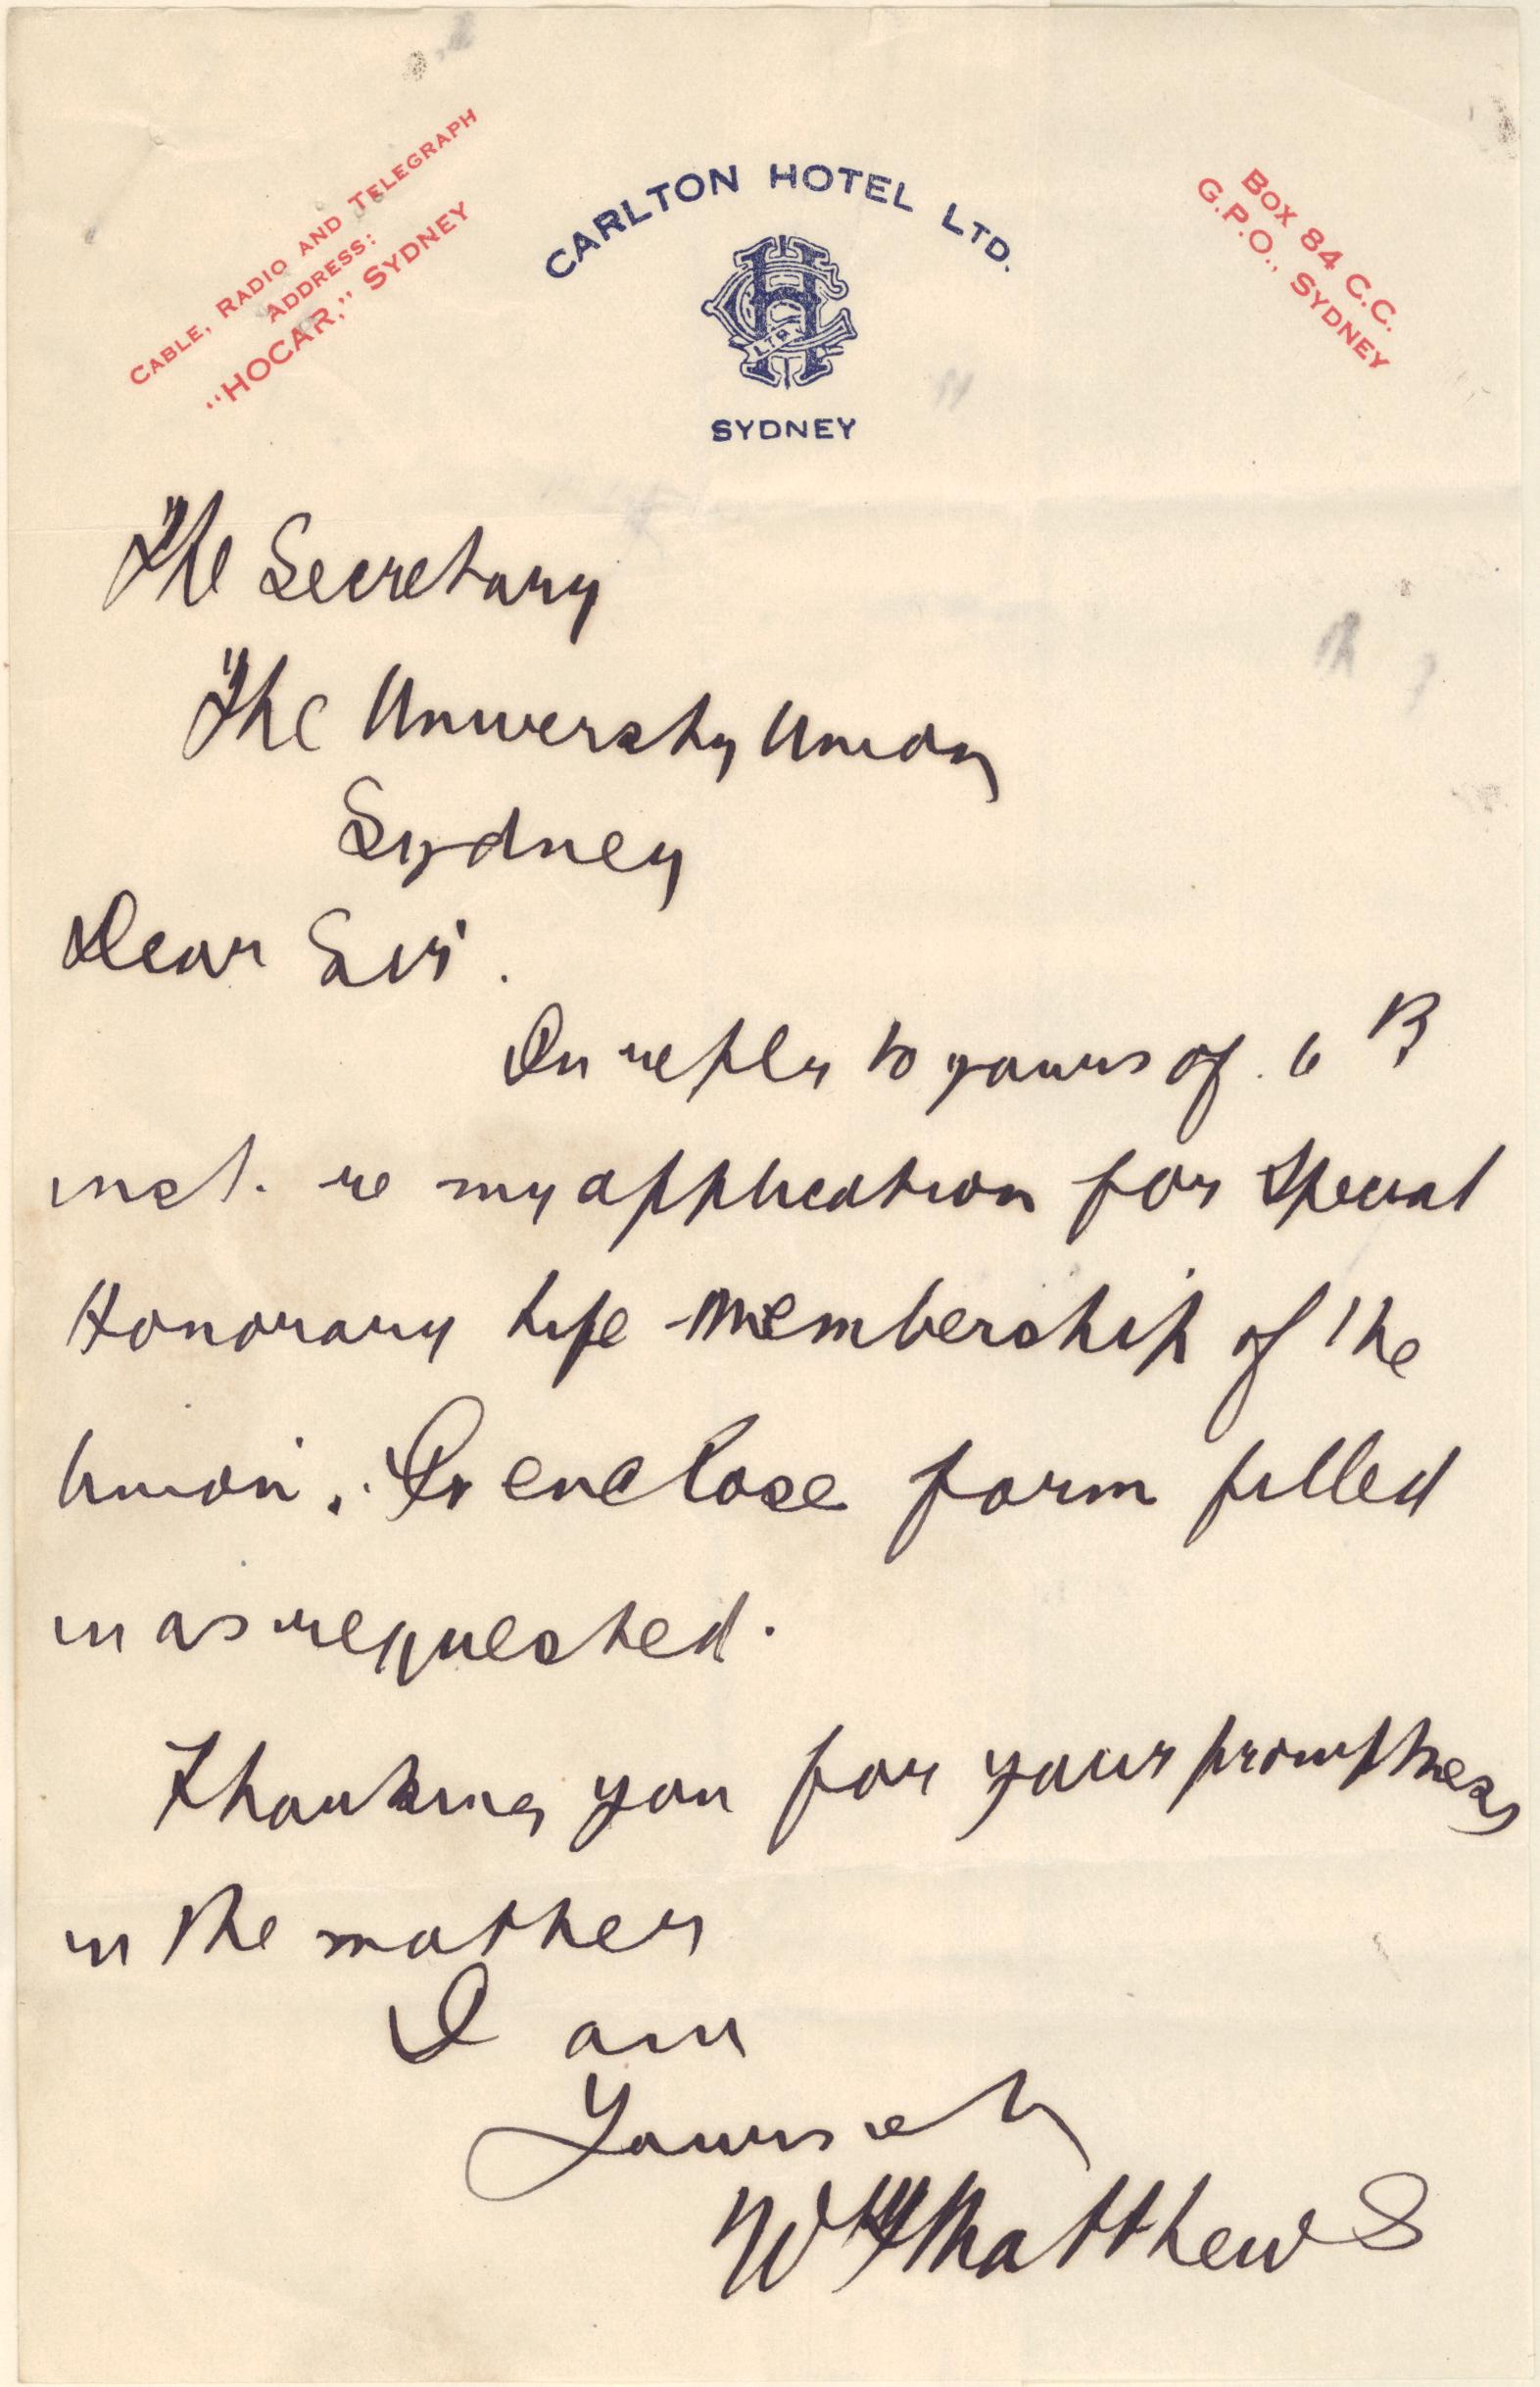 CABLE, RADIO AND TELEGRAPH
ADDRESS:
"HOCAR," SYDNEY
CARLTON HOTEL LTD.
LTD.
SYDNEY
BOX 84 C.C.
G.P.O., SYDNEY
The Secretary
The University Union
Sydney
Dear Sir.
In reply to yours of 6th
inst. re my application for Special
Honorary Life Membership of the
Union. I enclose form filled
in as requested.
Thanking you for your promptness
in the matter
I am
Yours etc
W Matthews